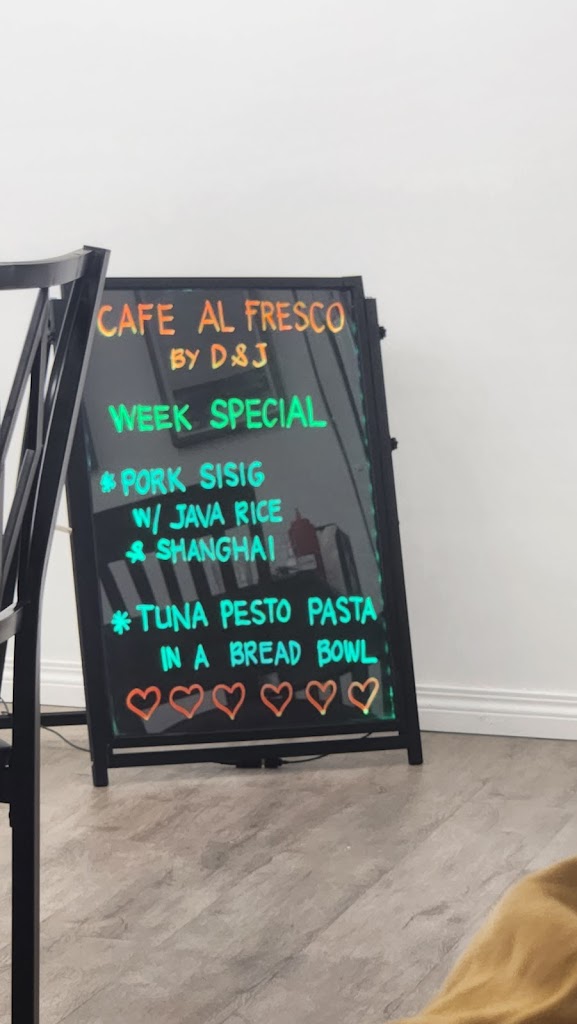 CAFE AL FRESCO
BY D & J
WEEK SPECIAL
* PORK SISIG
W/ JAVA RICE
& SHANGHAI
* TUNA PESTO PASTA
IN A BREAD BOWL